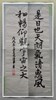 是日也天朗氣清惠風
和暢仰觀宇宙之大